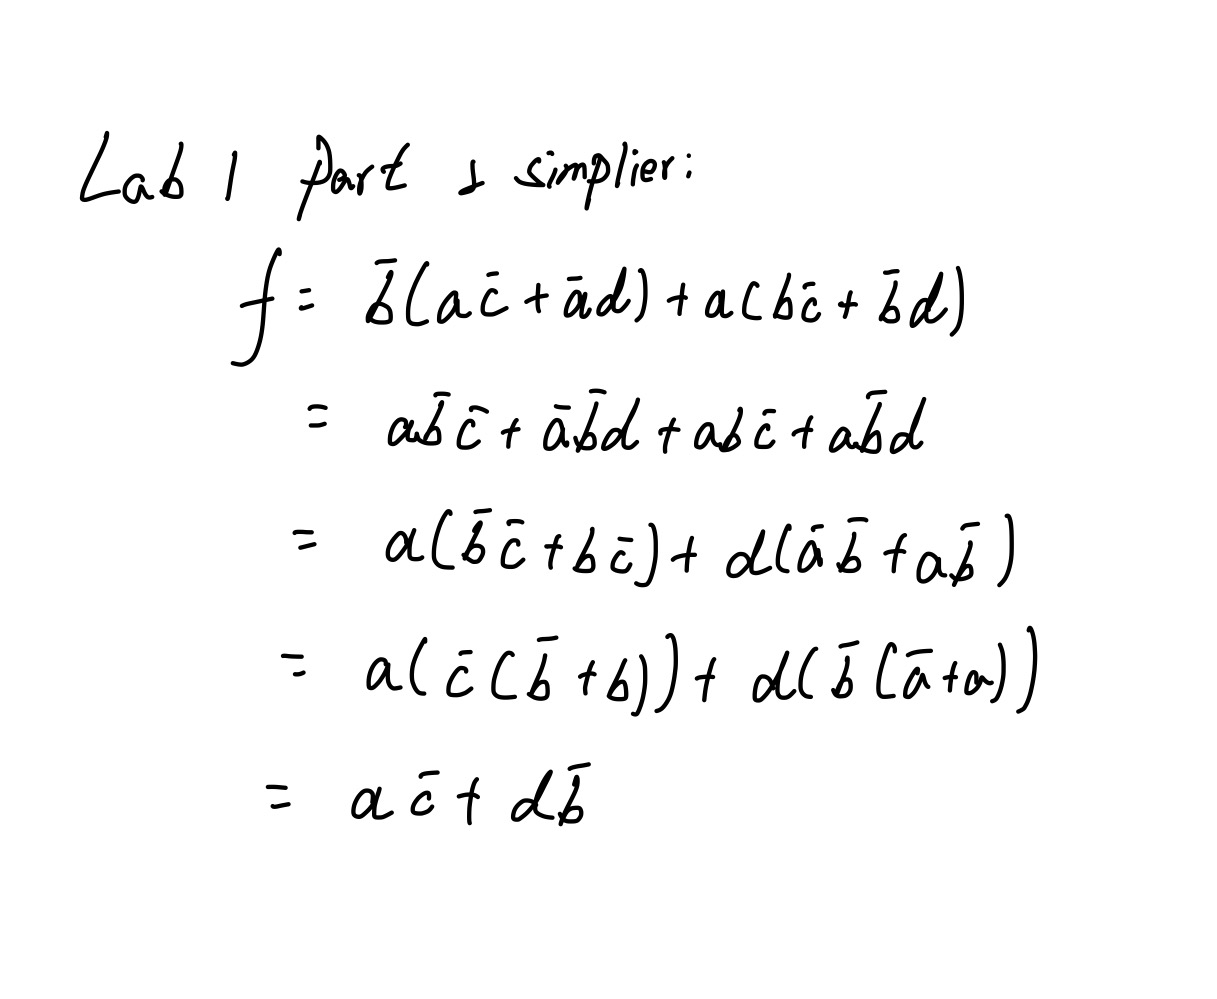 Lab 1 Part 1 simplier:
f = b̄(ac̄ + ād) + a(bc̄ + b̄d)
= ab̄c̄ + āb̄d + abc̄ + ab̄d
= a(b̄c̄ + bc̄) + d(āb̄ + ab̄)
= a(c̄(b̄ + b)) + d(b̄(ā + a))
= ac̄ + db̄